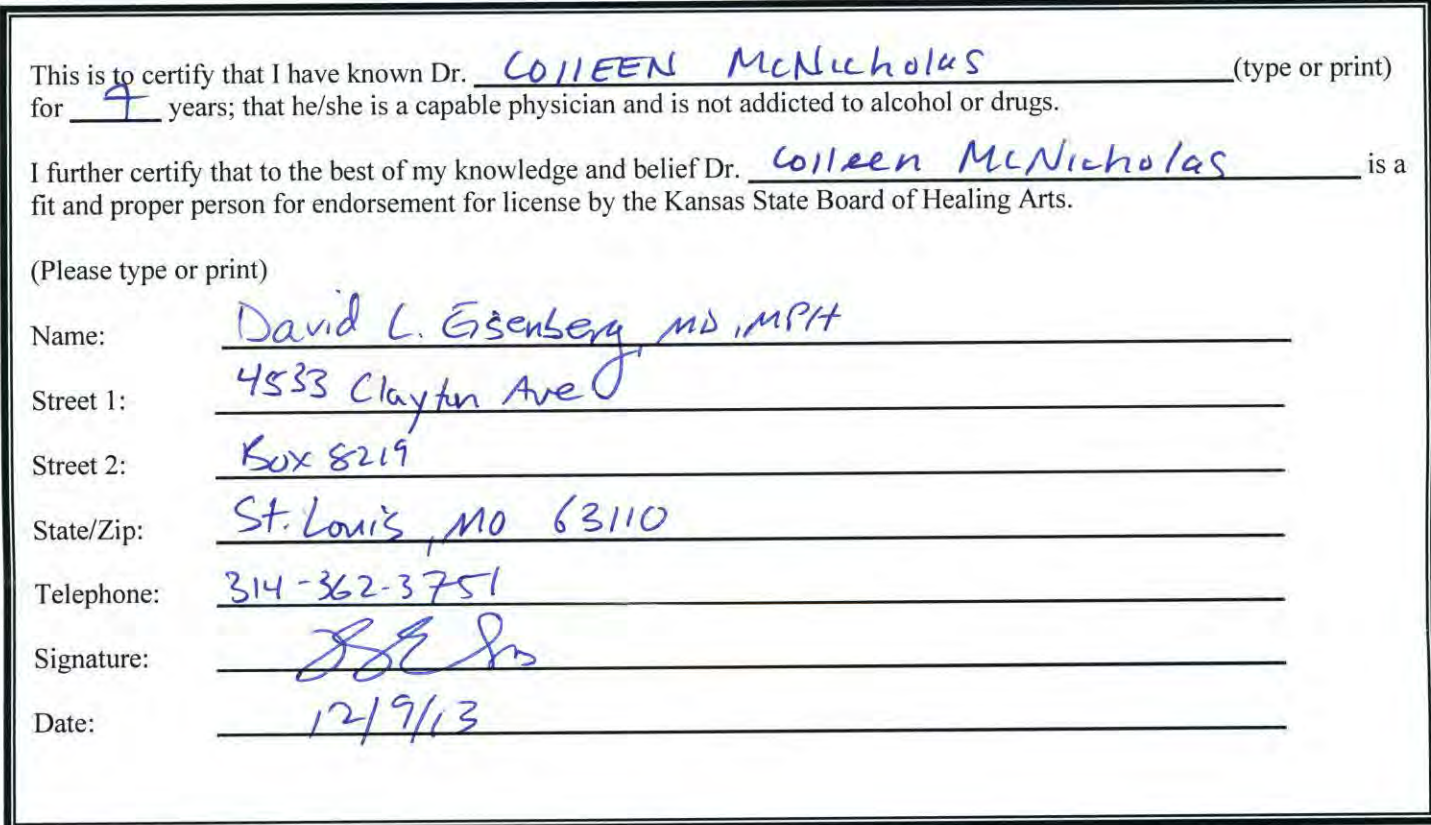 This is to certify that I have known Dr. COllEEN McNicholas (type or print)
for years; that he/she is a capable physician and is not addicted to alcohol or drugs.
I further certify that to the best of my knowledge and belief Dr. Colleen McNicholas is a
fit and proper person for endorsement for license by the Kansas State Board of Healing Arts.
(Please type or print)
Name: David L. Eisenberg, MD, MPH
Street 1: 4533 Clayton Ave
Street 2: Box 8219
State/Zip: St. Louis, MO 63110
Telephone: 314-362-3751
Signature:
Date: 12/9/13